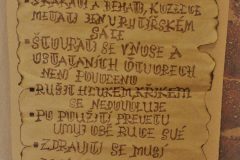 SKÁKATI A BĚHATI, KUŽELCE
METATI JEN V RYTÍŘSKÉM
SÁLE
• ŠŤOURATI SE V NOSE A
OSTATNÍCH OTVORECH
NENÍ DOVOLENO
• RUŠIT HLUKEM, KŘIKEM
SE NEDOVOLUJE
• PO POUŽITÍ PREVETU
UMYJ OBĚ RUCE SVÉ
• ZDRAVITI SE MUSÍ